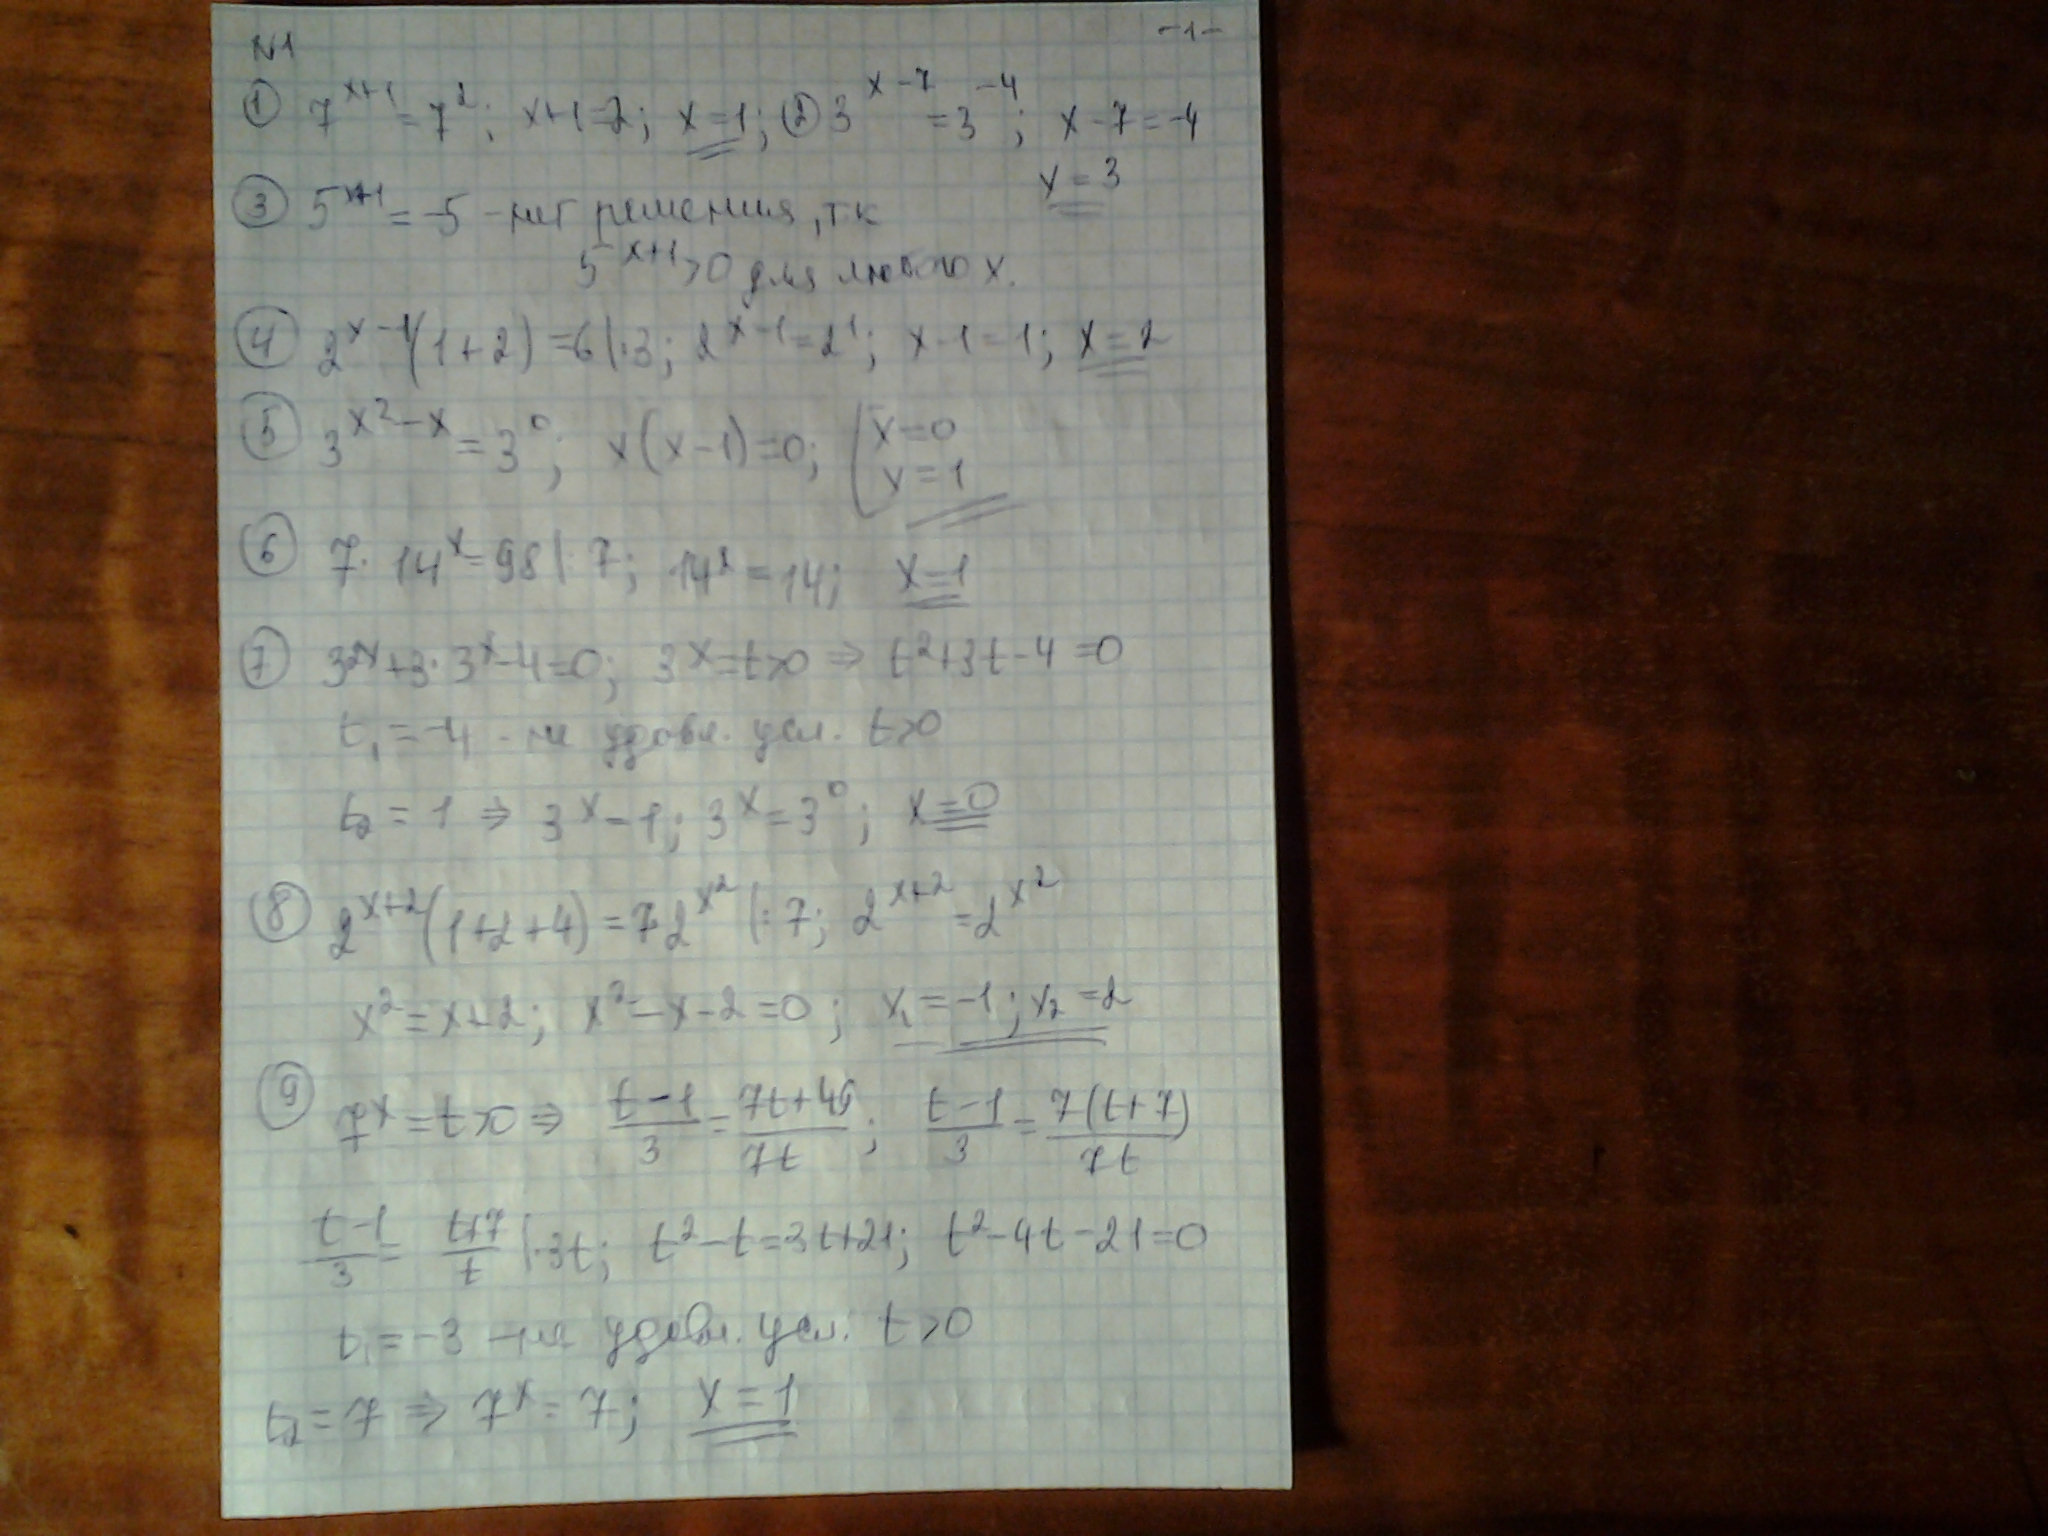 N1 -1-
① 7^(x+1) = 7^2; x+1=2; x=1; ② 3^(x-7) = 3^(-4); x-7=-4
x=3
③ 5^(x+1) = -5 - нет решения, т к
5^(x+1)>0 для любого x.
④ 2^(x-1)(1+2)=6 |:3; 2^(x-1)=2^1; x-1=1; x=2
⑤ 3^(x^2-x)=3^0; x(x-1)=0; [x=0
x=1
⑥ 7·14^x=98 |:7; 14^x=14; x=1
⑦ 3^(2x)+3·3^x-4=0; 3^x=t>0 ⇒ t^2+3t-4=0
t₁=-4 - не удовл. усл. t>0
t₂=1 ⇒ 3^x=1; 3^x=3^0; x=0
⑧ 2^(x+2)(1+2+4)=7·2^(x^2) |:7; 2^(x+2)=2^(x^2)
x^2=x+2; x^2-x-2=0; x₁=-1; x₂=2
⑨ 7^x=t>0 ⇒ (t-1)/3=(7t+49)/(7t); (t-1)/3=(7(t+7))/(7t)
(t-1)/3=(t+7)/t |·3t; t^2-t=3t+21; t^2-4t-21=0
t₁=-3 - не удовл. усл. t>0
t₂=7 ⇒ 7^x=7; x=1